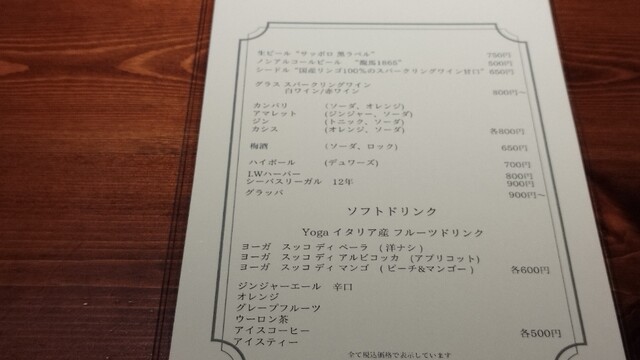 生ビール“サッポロ 黒ラベル” 750円
ノンアルコールビール “龍馬1865” 500円
シードル“国産リンゴ100%のスパークリングワイン甘口” 650円
グラス スパークリングワイン
白ワイン/赤ワイン 800円～
カンパリ （ソーダ、オレンジ）
アマレット （ジンジャー、ソーダ）
ジン （トニック、ソーダ）
カシス （オレンジ、ソーダ） 各800円
梅酒 （ソーダ、ロック） 650円
ハイボール （デュワーズ） 700円
I.Wハーパー 800円
シーバスリーガル 12年 900円
グラッパ 900円～
ソフトドリンク
Yoga イタリア産 フルーツドリンク
ヨーガ スッコ ディ ペーラ （洋ナシ）
ヨーガ スッコ ディ アルビコッカ （アプリコット）
ヨーガ スッコ ディ マンゴ （ピーチ&マンゴー） 各600円
ジンジャーエール 辛口
オレンジ
グレープフルーツ
ウーロン茶
アイスコーヒー 各500円
アイスティー
全て税込価格で表示しています